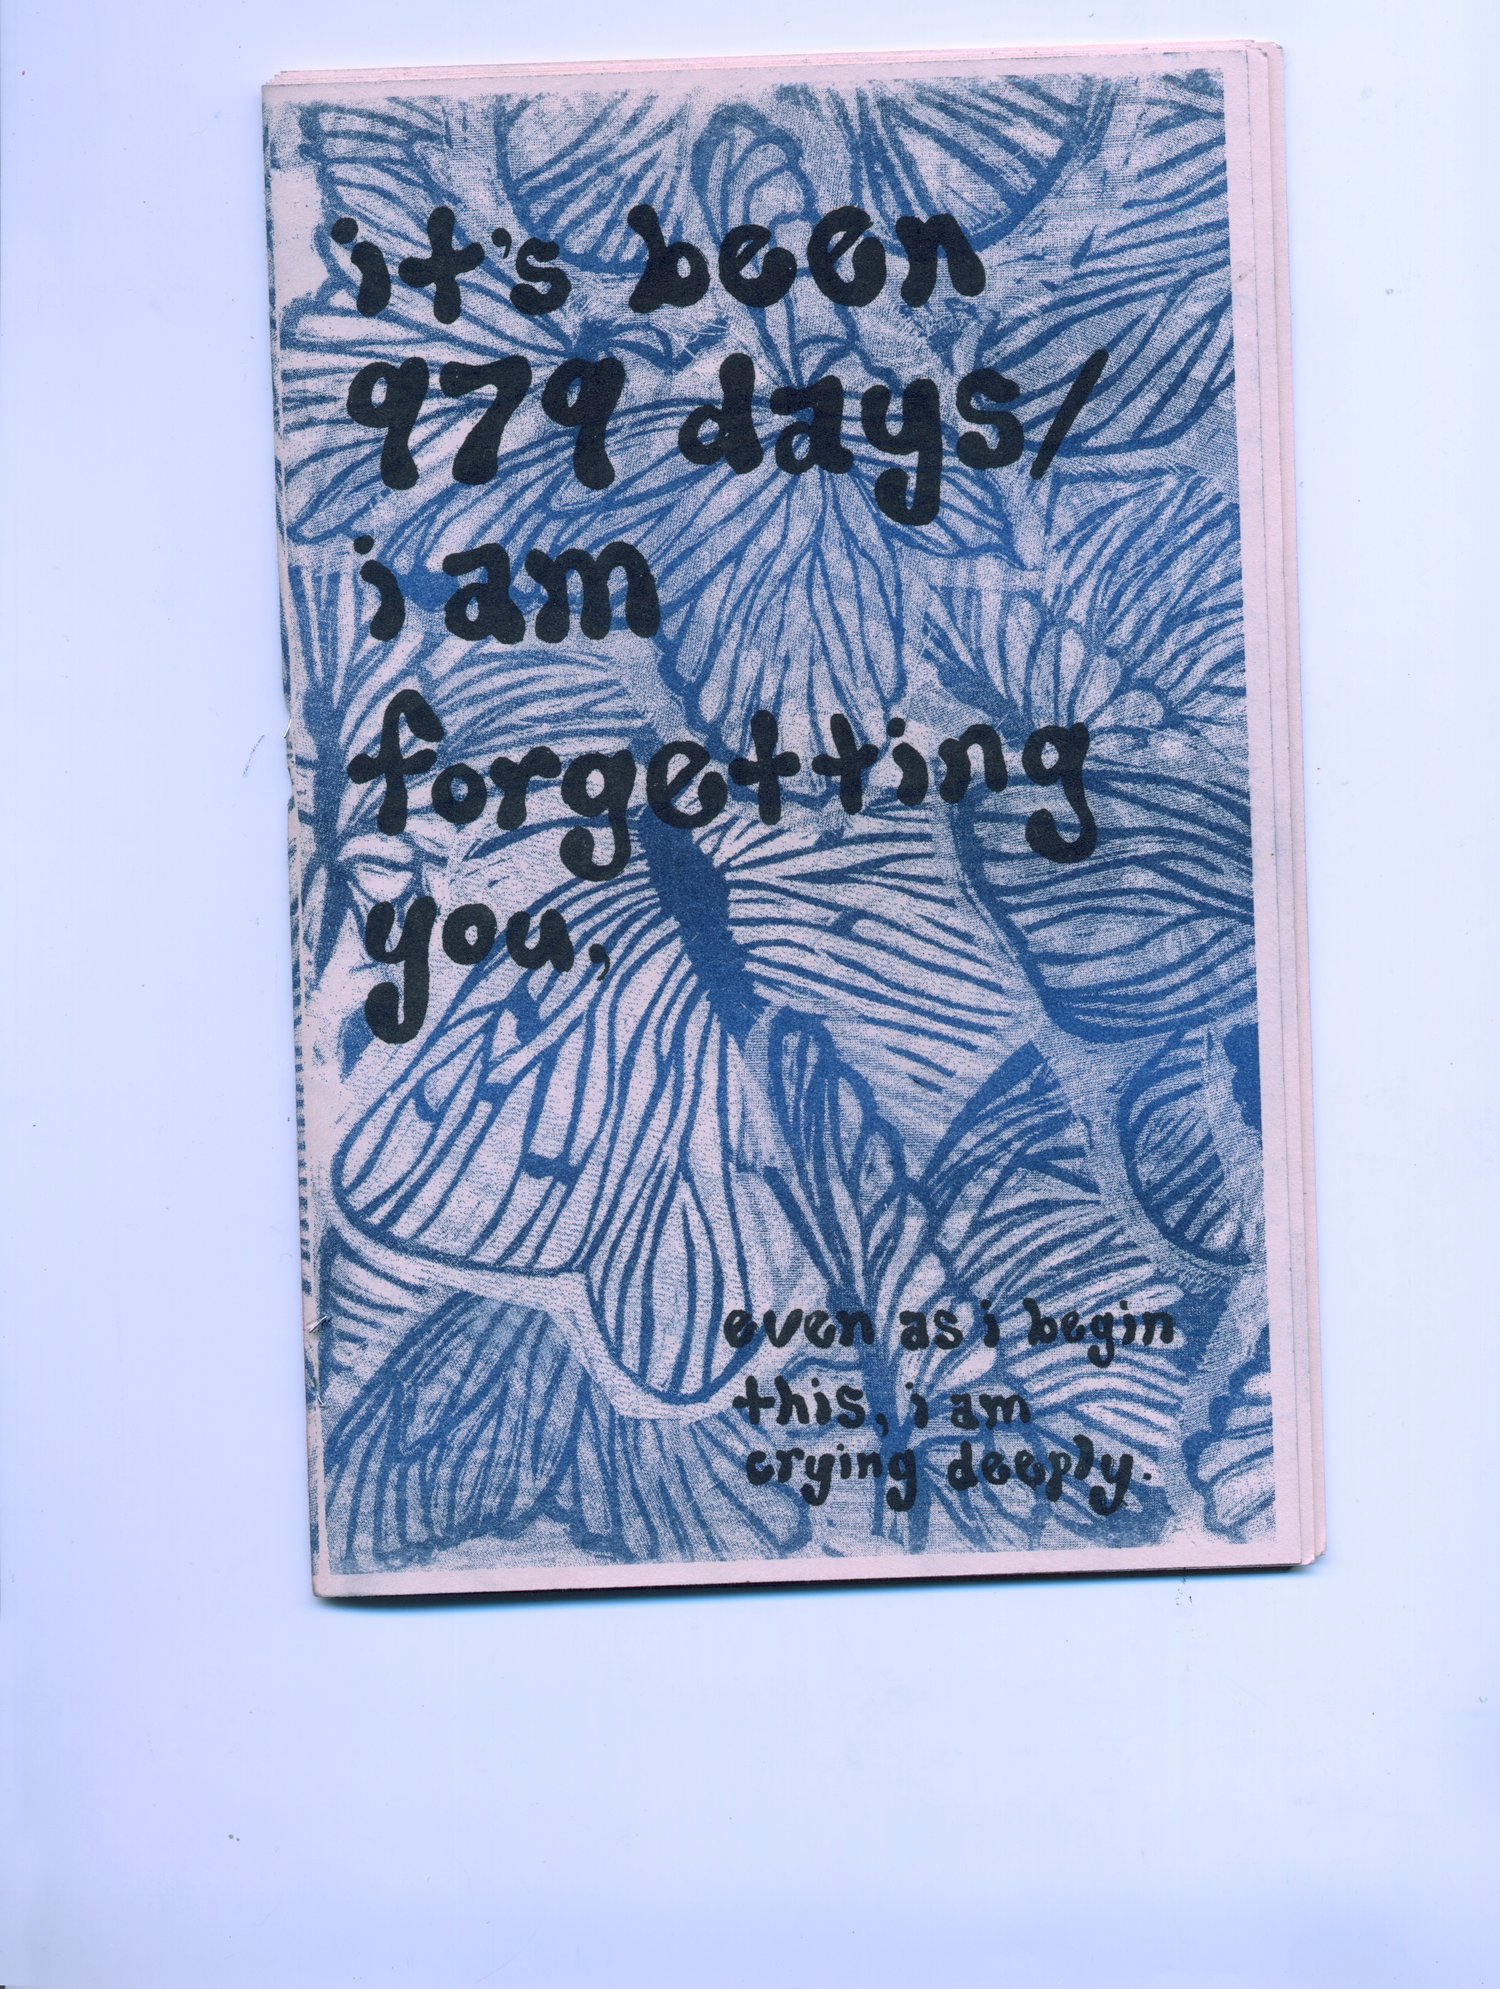 it's been
979 days/
i am
forgetting
you,
even as i begin
this, i am
crying deeply.